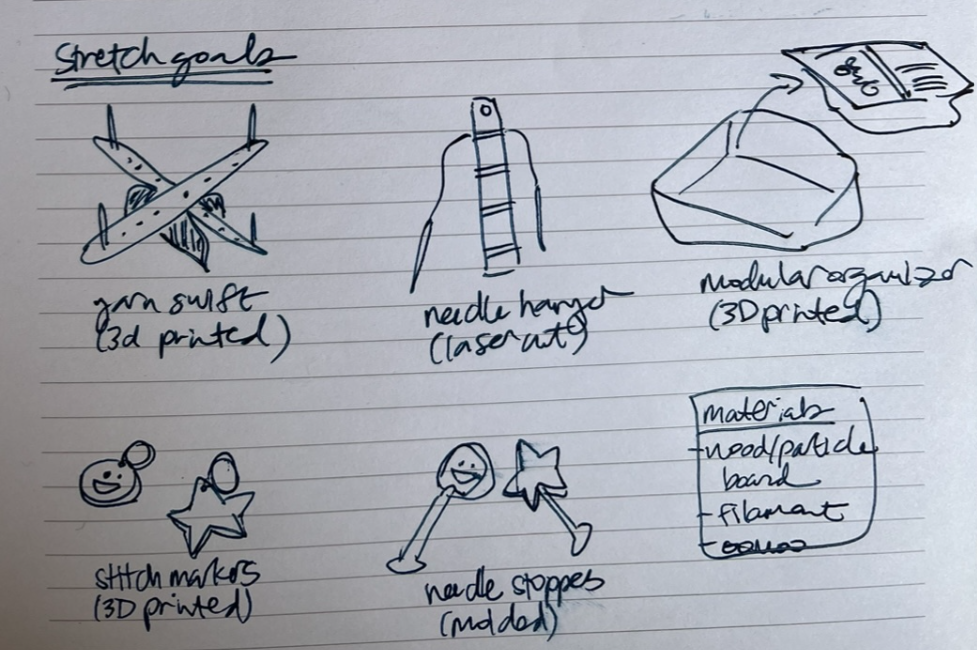 Stretch goals
yarn swift
(3d printed)
needle hanger
(laser cut)
modular organizer
(3D printed)
stitch markers
(3D printed)
needle stoppers
(molded)
materials
- wood/particle
board
- filament